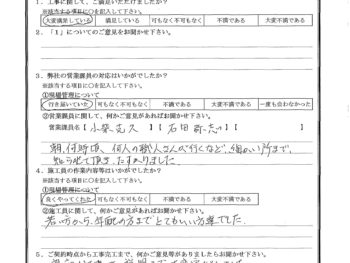 1．工事に関して、ご満足いただけましたか？
※該当する項目に○を記入して下さい。
大変満足している 満足している 可もなく不可もなく 不満である 大変不満である
2．「1」についてのご意見をお聞かせ下さい。
3．弊社の営業課員の対応はいかがでしたか？
※該当する項目に○を記入して下さい。
①現場管理について
行き届いていた 可もなく不可もなく 不満である 大変不満である 一度も会わなかった
②営業課員に関して、何かご意見があればお聞かせ下さい。
営業課員名【 小柴 克久 】【 石田 】
朝、何時頃、何人の職人さんが行くなど、細かい所まで、
知らせて頂き、たすかりました。
4．施工員の作業内容等はいかがでしたか？
※該当する項目に○を記入して下さい。
①現場管理について
良くやってくれた 可もなく不可もなく 不満である 大変不満である
②施工員に関して、何かご意見があればお聞かせ下さい。
若い方から、年配の方までとてもいい方達でした。
5．ご契約時点から工事完了まで、何かご意見等がありましたらお聞かせ下さい。